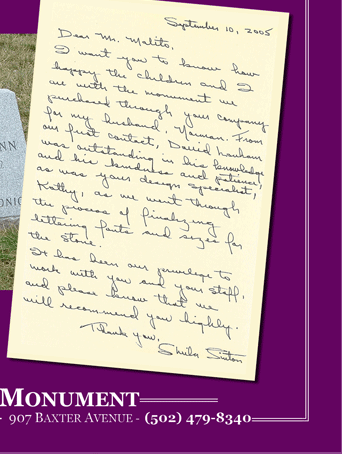 September 10, 2005
Dear Mr. Malito,
I want you to know how
happy the children and I
are with the monument we
purchased through your company
for my husband, Norman. From
our first contact, David
was outstanding in his knowledge
and his kindness and patience,
as was your design specialist,
Kathy, as we went through
the process of finalizing
lettering fonts and sizes for
the stone.
It has been our privilege to
work with you and your staff,
and please know that we
will recommend you highly.
Thank you,
Sheila
NN
ONIC
MONUMENT
- 907 BAXTER AVENUE - (502) 479-8340